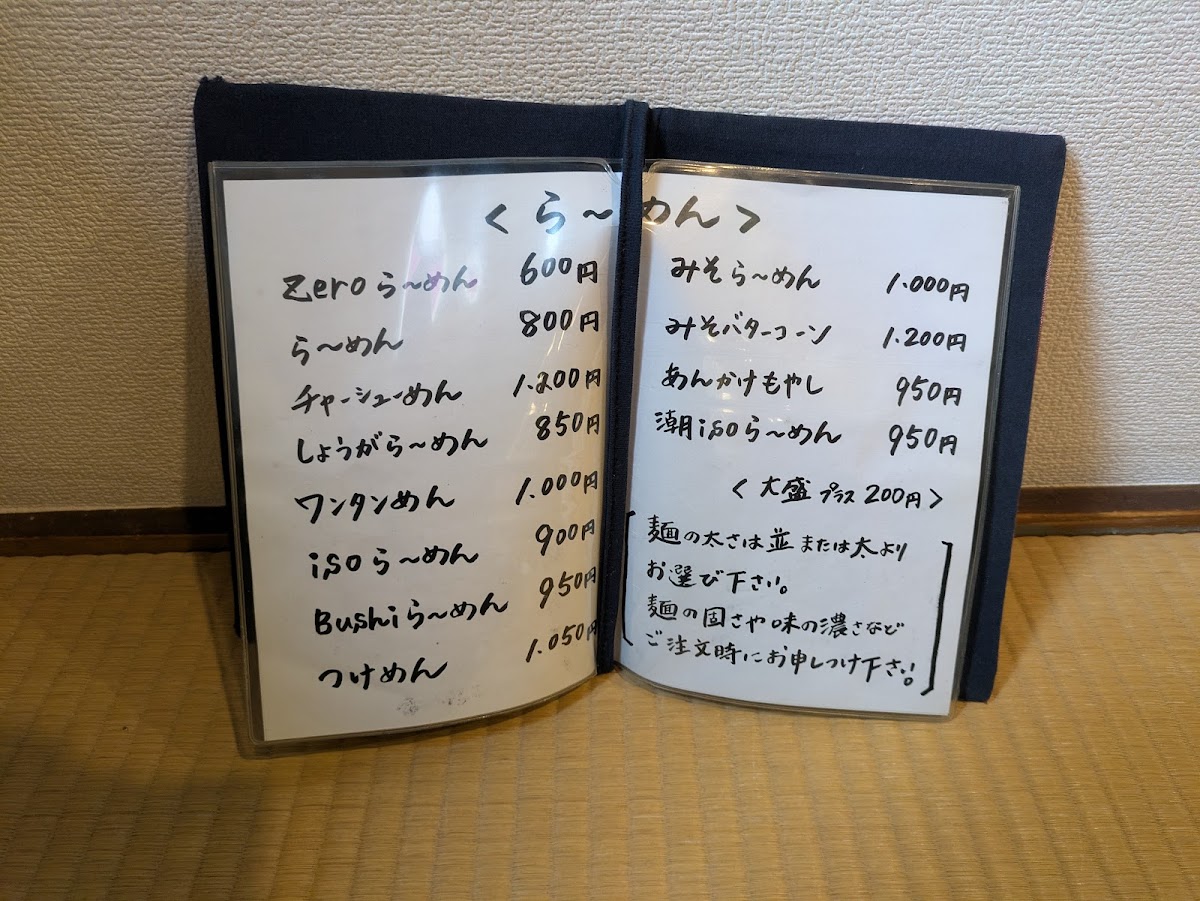 <ら〜めん>
Zeroら〜めん 600円
ら〜めん 800円
チャーシューめん 1.200円
しょうがら〜めん 850円
ワンタンめん 1.000円
isoら〜めん 900円
Bushiら〜めん 950円
つけめん 1.050円
みそら〜めん 1.000円
みそバターコーン 1.200円
あんかけもやし 950円
潮isoら〜めん 950円
<大盛プラス200円>
麺の太さは並または太より
お選び下さい。
麺の固さや味の濃さなど
ご注文時にお申しつけ下さい!